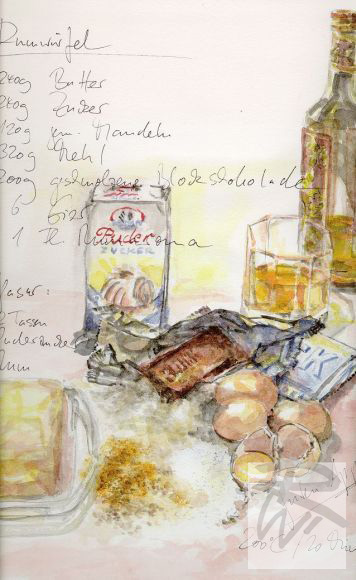 Rumwürfel
240g Butter
240g Zucker
120g gem. Mandeln
320g Mehl
200g geschmolzene Blockschokolade
6 Eier
1 Fl. Rumaroma
Puder
ZUCKER
Glasur:
2 Tassen
Puderzucker
Rum
RUM